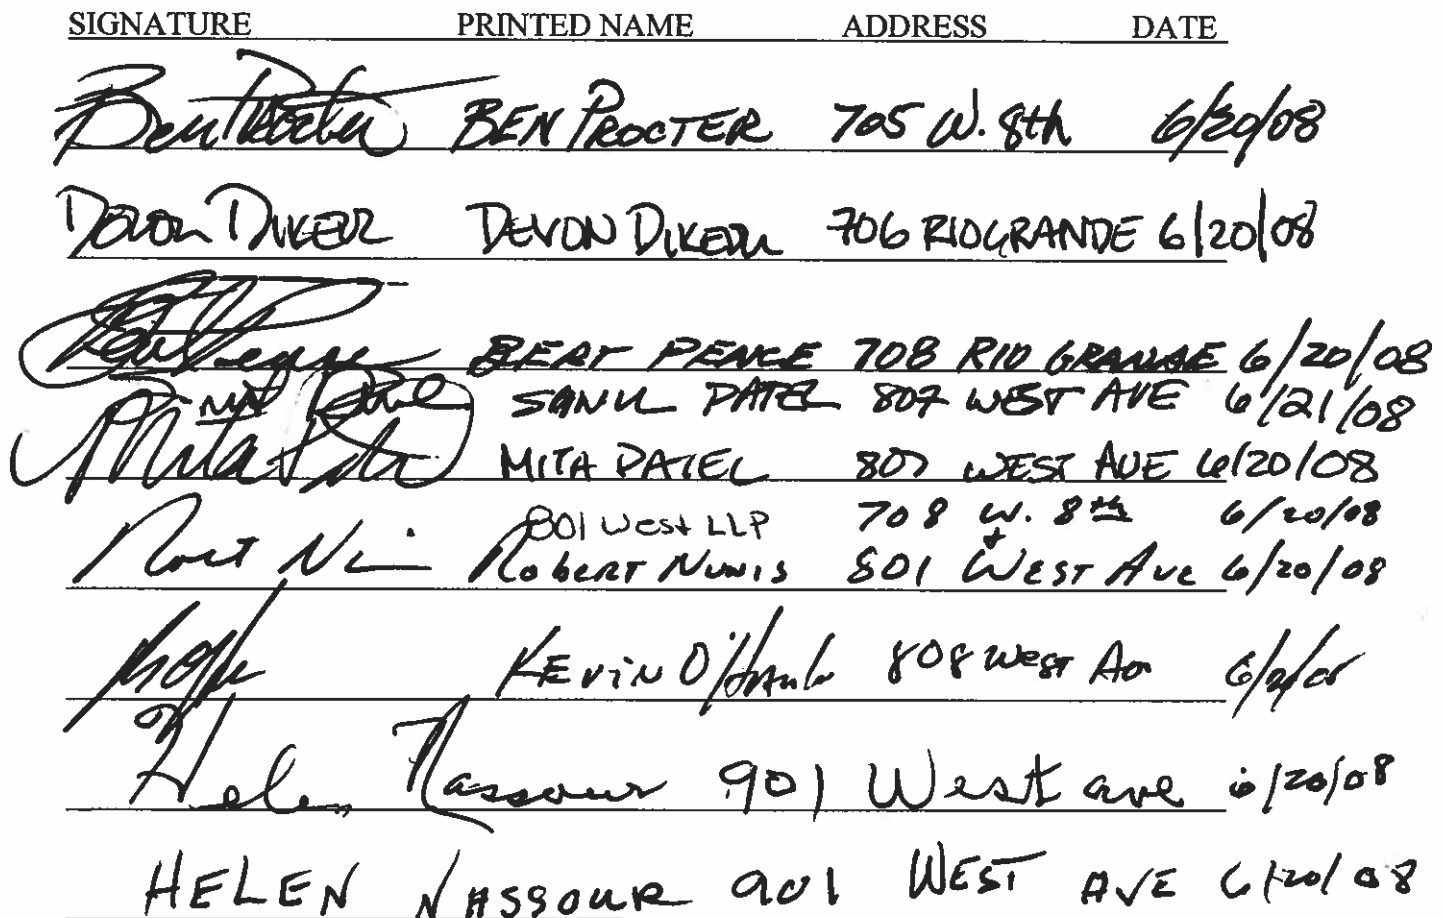 SIGNATURE PRINTED NAME ADDRESS DATE
Ben Procter BEN PROCTER 705 W. 8th 6/20/08
Devon Dikeou DEVON DIKEOU 706 RIO GRANDE 6/20/08
BERT PENCE 708 RIO GRANDE 6/20/08
Patel PATEL 807 WEST AVE 6/21/08
Mita Patel MITA PATEL 807 WEST AVE 6/20/08
801 West LLP 708 W. 8th 6/20/08
+
ROBERT NUNIS 801 WEST AVE 6/20/08
KEVIN 808 WEST 6/
Helen Nassour 901 West ave 6/20/08
HELEN NASSOUR 901 WEST AVE 6/20/08